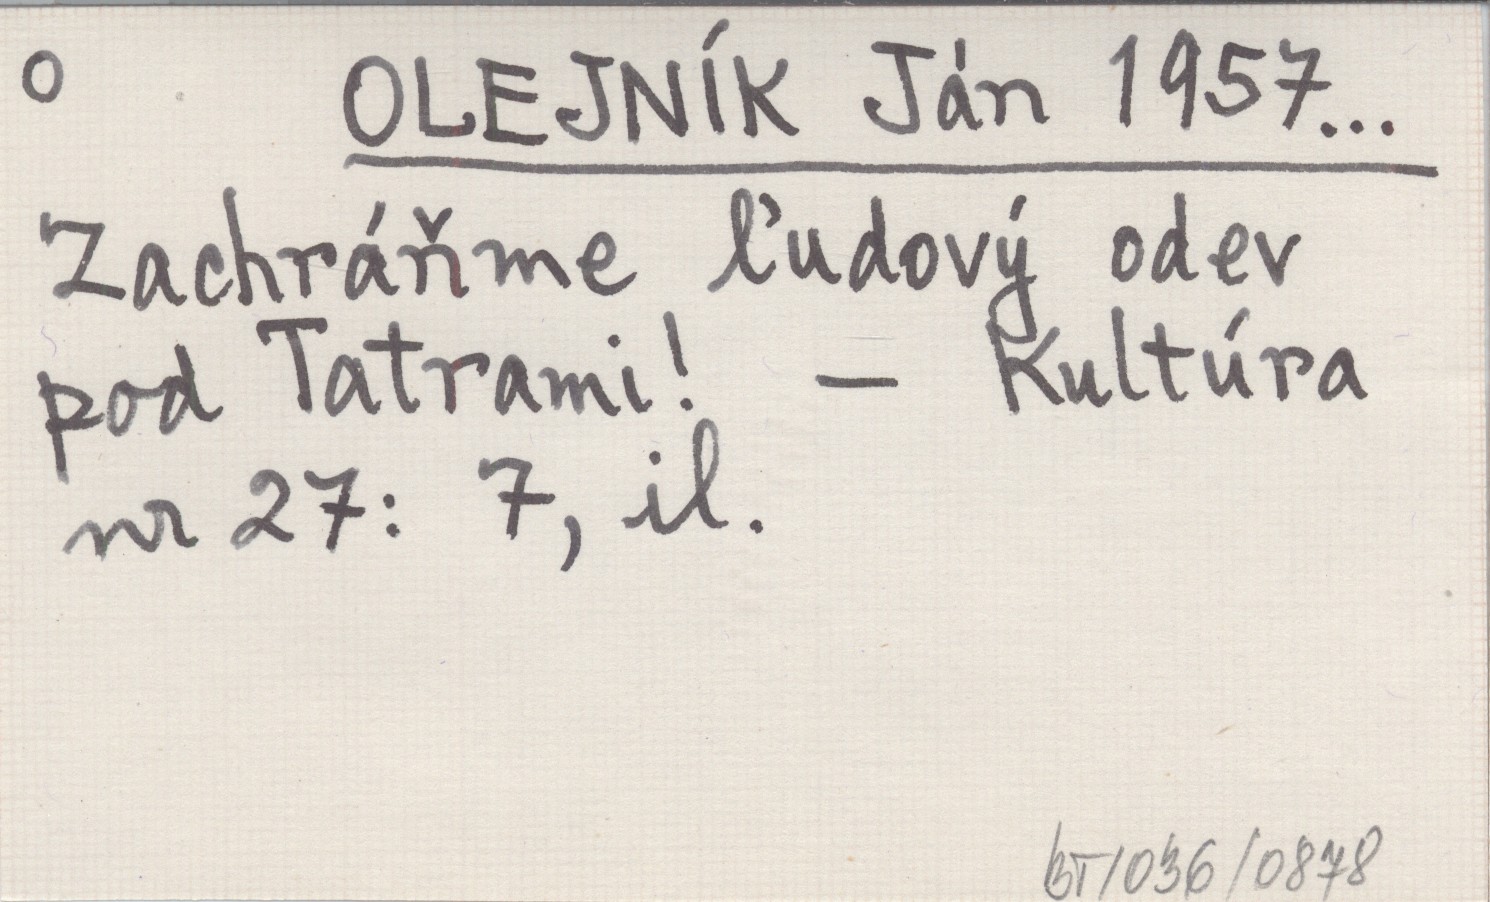 O OLEJNÍK Ján 1957...
Zachráňme ľudový odev
pod Tatrami! – Kultúra
nr 27: 7, il.
BT/036/0878